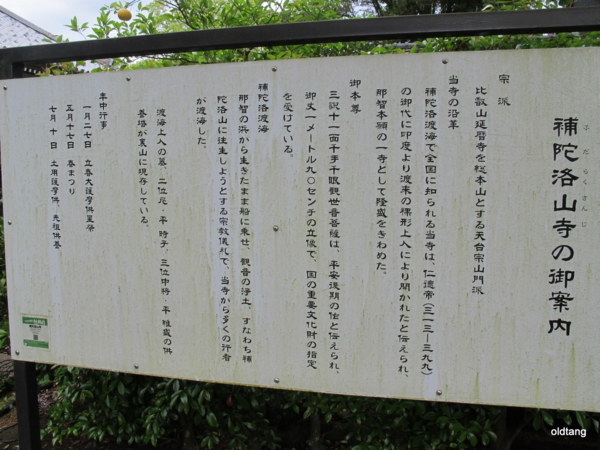 補陀洛山寺の御案内
ふだらくさんじ
宗派
比叡山延暦寺を総本山とする天台宗山門派
当寺の沿革
補陀洛渡海で全国に知られる当寺は、仁徳帝(三一三―三九九)
の御代に印度より渡来の裸形上人により開かれたと伝えられ、
那智本願の一寺として隆盛をきわめた。
御本尊
三貌十一面千手千眼観世音菩薩は、平安後期の作と伝えられ、
御丈一メートル九〇センチの立像で、国の重要文化財の指定
を受けている。
補陀洛渡海
那智の浜から生きたまま船に乗せ、観音の浄土、すなわち補
陀洛山に往生しようとする宗教儀礼で、当寺から多くの行者
が渡海した。
渡海上人の墓、二位尼、平 時子、三位中将、平 維盛の供
養塔が裏山に現存している。
年中行事
一月二七日 立春大護摩供星祭
五月十七日 春まつり
七月 十日 土用護摩供、先祖供養
oldtang